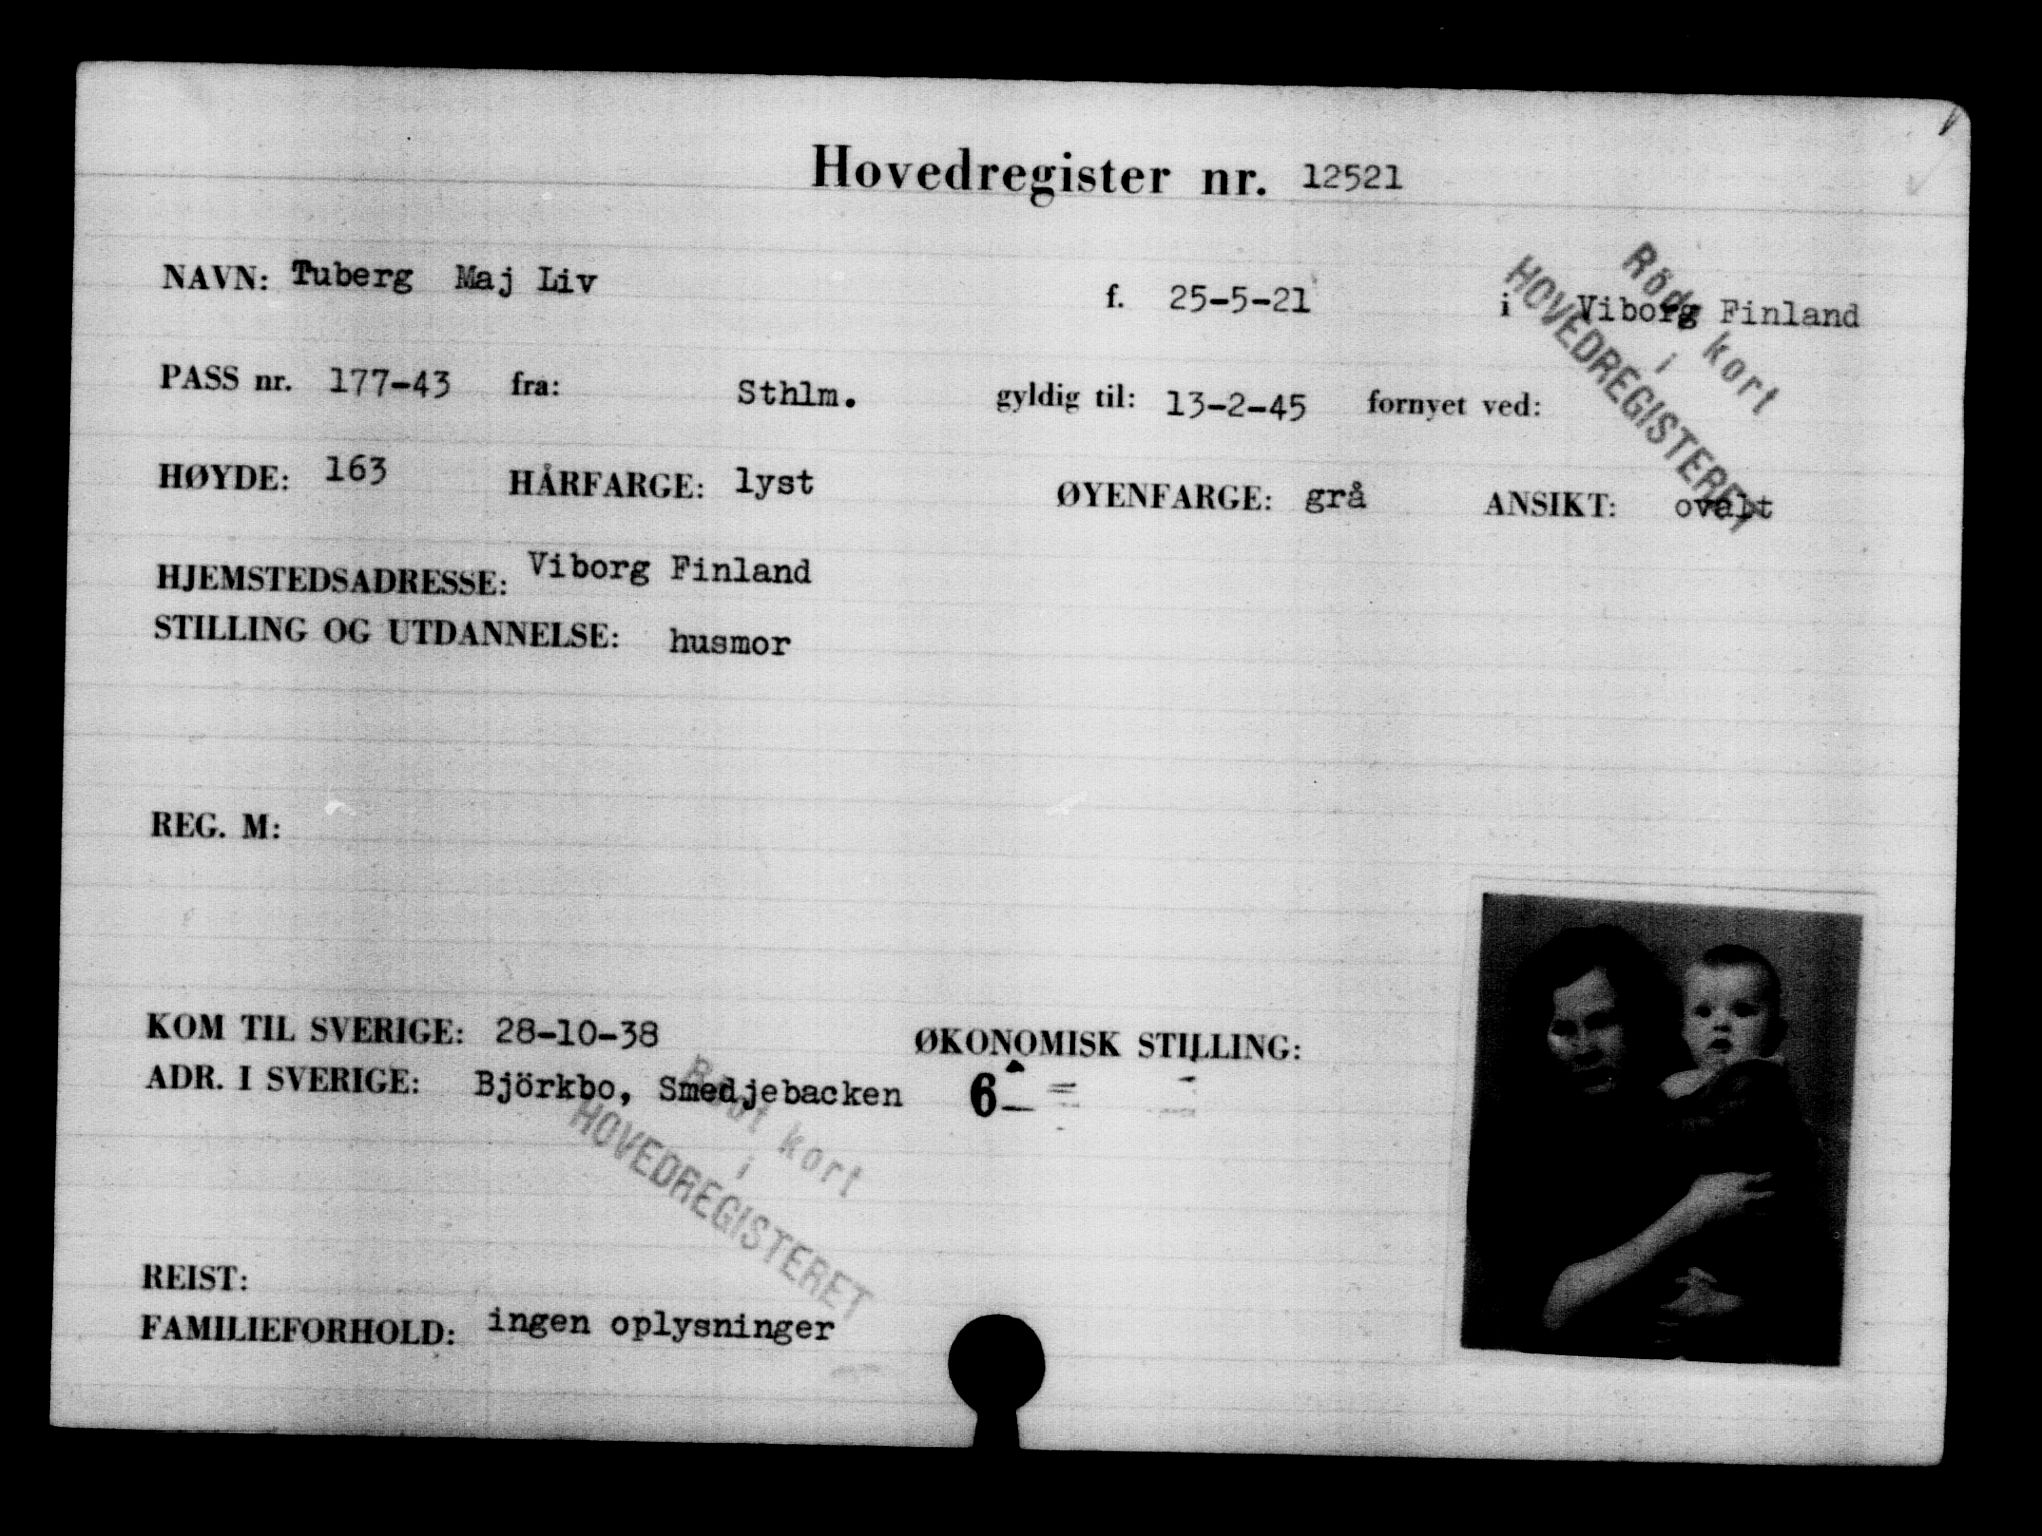 Hovedregister nr. 12521
NAVN: Tuberg Maj Liv f. 25-5-21 i Viborg Finland
PASS nr. 177-43 fra: Sthlm. gyldig til: 13-2-45 fornyet ved:
HØYDE: 163 HÅRFARGE: lyst ØYENFARGE: grå ANSIKT: ovalt
Rödt kort
i
HOVEDREGISTERET
HJEMSTEDSADRESSE: Viborg Finland
STILLING OG UTDANNELSE: husmor
REG. M:
KOM TIL SVERIGE: 28-10-38 ØKONOMISK STILLING:
ADR. I SVERIGE: Björkbo, Smedjebacken 6
Rödt kort
i
HOVEDREGISTERET
REIST:
FAMILIEFORHOLD: ingen oplysninger